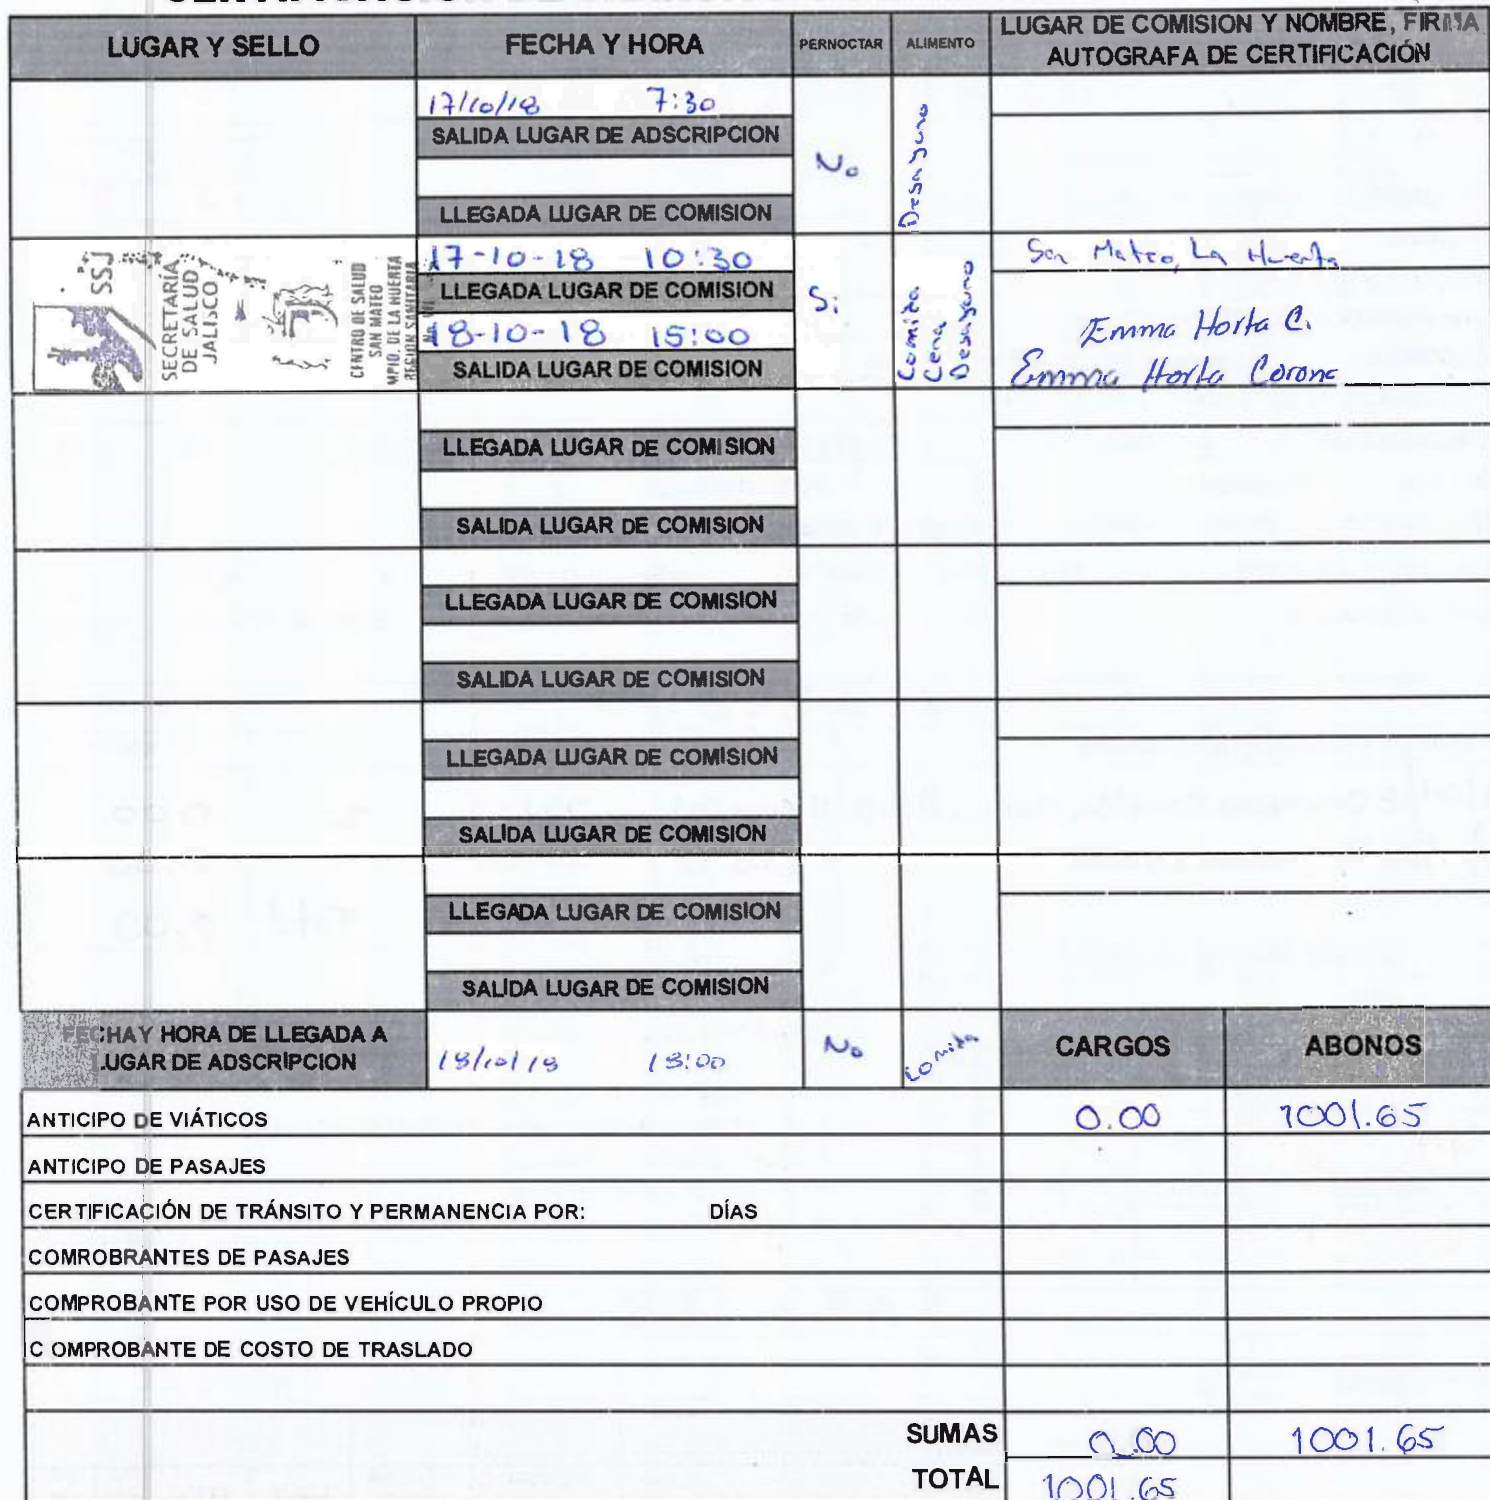 LUGAR Y SELLO FECHA Y HORA PERNOCTAR ALIMENTO LUGAR DE COMISION Y NOMBRE, FIRMA
AUTOGRAFA DE CERTIFICACIÓN
17/10/18 7:30
SALIDA LUGAR DE ADSCRIPCION
No
Desayuno
LLEGADA LUGAR DE COMISION
SSJ
SECRETARIA
DE SALUD
JALISCO
CENTRO DE SALUD
SAN MATEO
MPIO. DE LA HUERTA
REGION SANITARIA
17-10-18 10:30
LLEGADA LUGAR DE COMISION
18-10-18 15:00
SALIDA LUGAR DE COMISION
Si
Comida
Cena
Desayuno
San Mateo, La Huerta
Emma Horta C.
Emma Horta Corona
LLEGADA LUGAR DE COMISION
SALIDA LUGAR DE COMISION
LLEGADA LUGAR DE COMISION
SALIDA LUGAR DE COMISION
LLEGADA LUGAR DE COMISION
SALIDA LUGAR DE COMISION
LLEGADA LUGAR DE COMISION
SALIDA LUGAR DE COMISION
FECHA Y HORA DE LLEGADA A
LUGAR DE ADSCRIPCION
18/10/18 18:00
No
Comida
CARGOS ABONOS
ANTICIPO DE VIÁTICOS 0.00 1001.65
ANTICIPO DE PASAJES
CERTIFICACIÓN DE TRÁNSITO Y PERMANENCIA POR: DÍAS
COMROBRANTES DE PASAJES
COMPROBANTE POR USO DE VEHÍCULO PROPIO
C OMPROBANTE DE COSTO DE TRASLADO
SUMAS 0.00 1001.65
TOTAL 1001.65